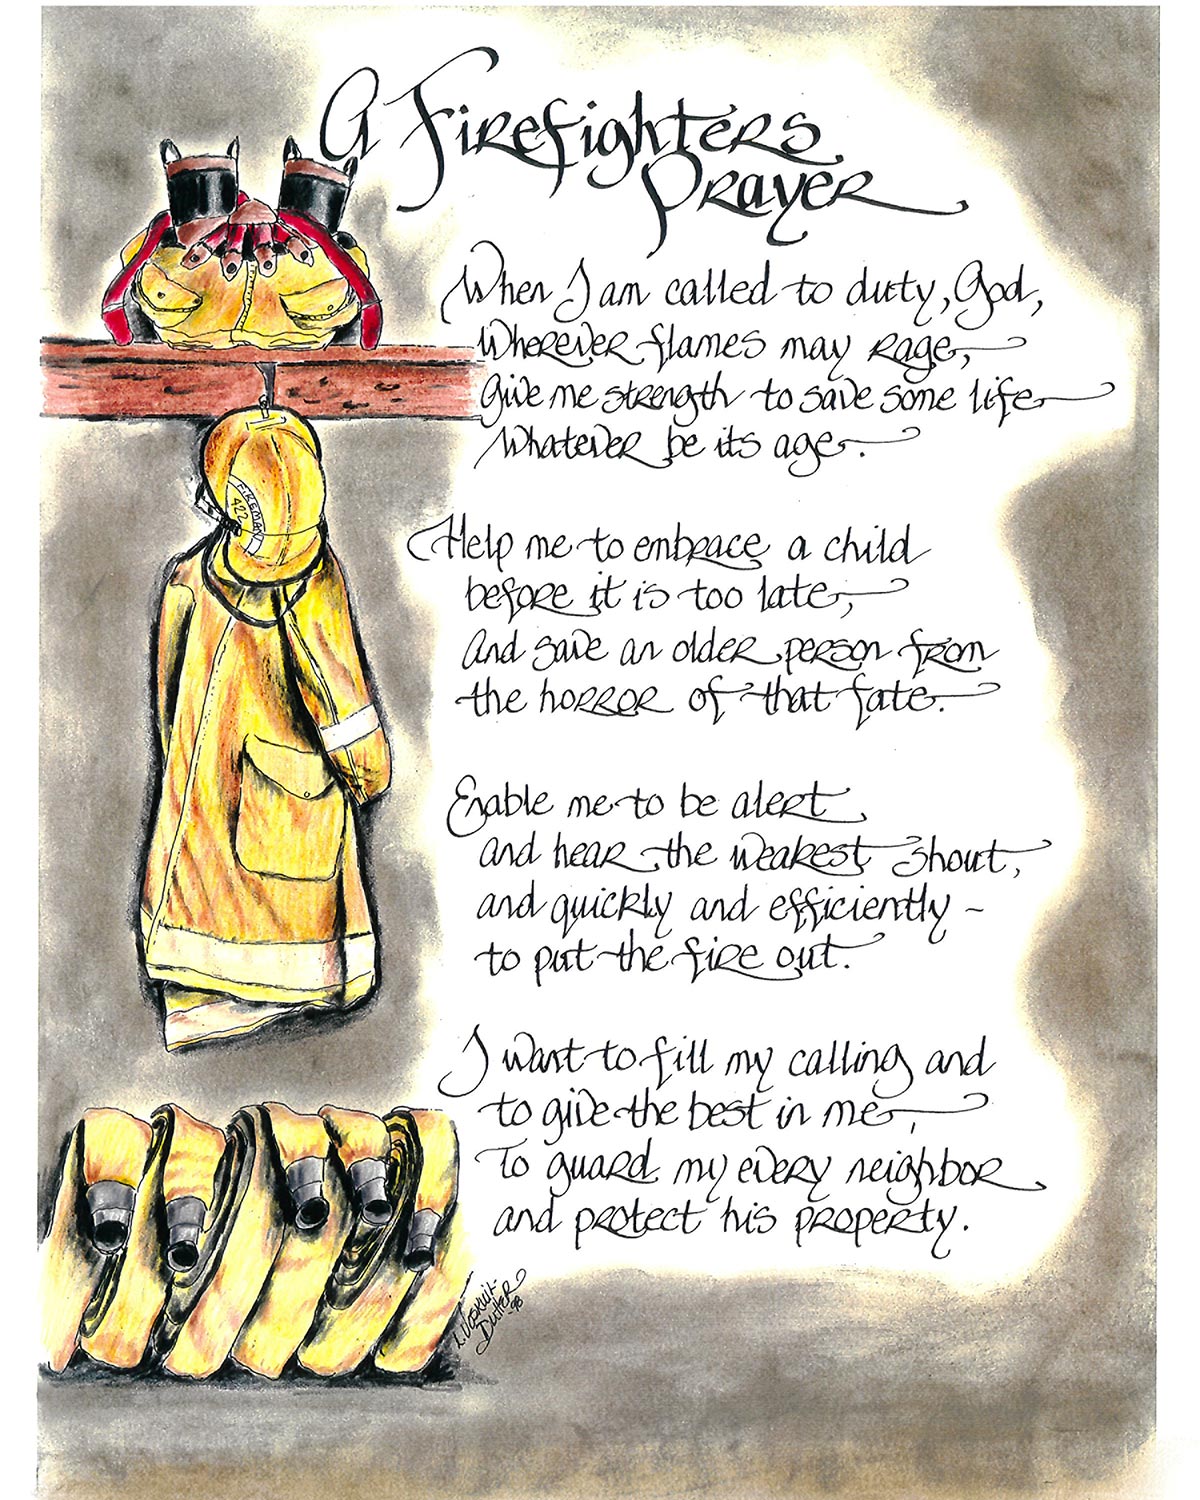 A Firefighters
Prayer
When I am called to duty, God,
Wherever flames may rage,
Give me strength to save some life
Whatever be its age.
Help me to embrace a child
before it is too late,
And save an older person from
the horror of that fate.
Enable me to be alert
and hear the weakest shout,
and quickly and efficiently -
to put the fire out.
I want to fill my calling and
to give the best in me,
To guard my every neighbor
and protect his property.
FIREMAN
422
L. Voskuil-
Dutter
-98